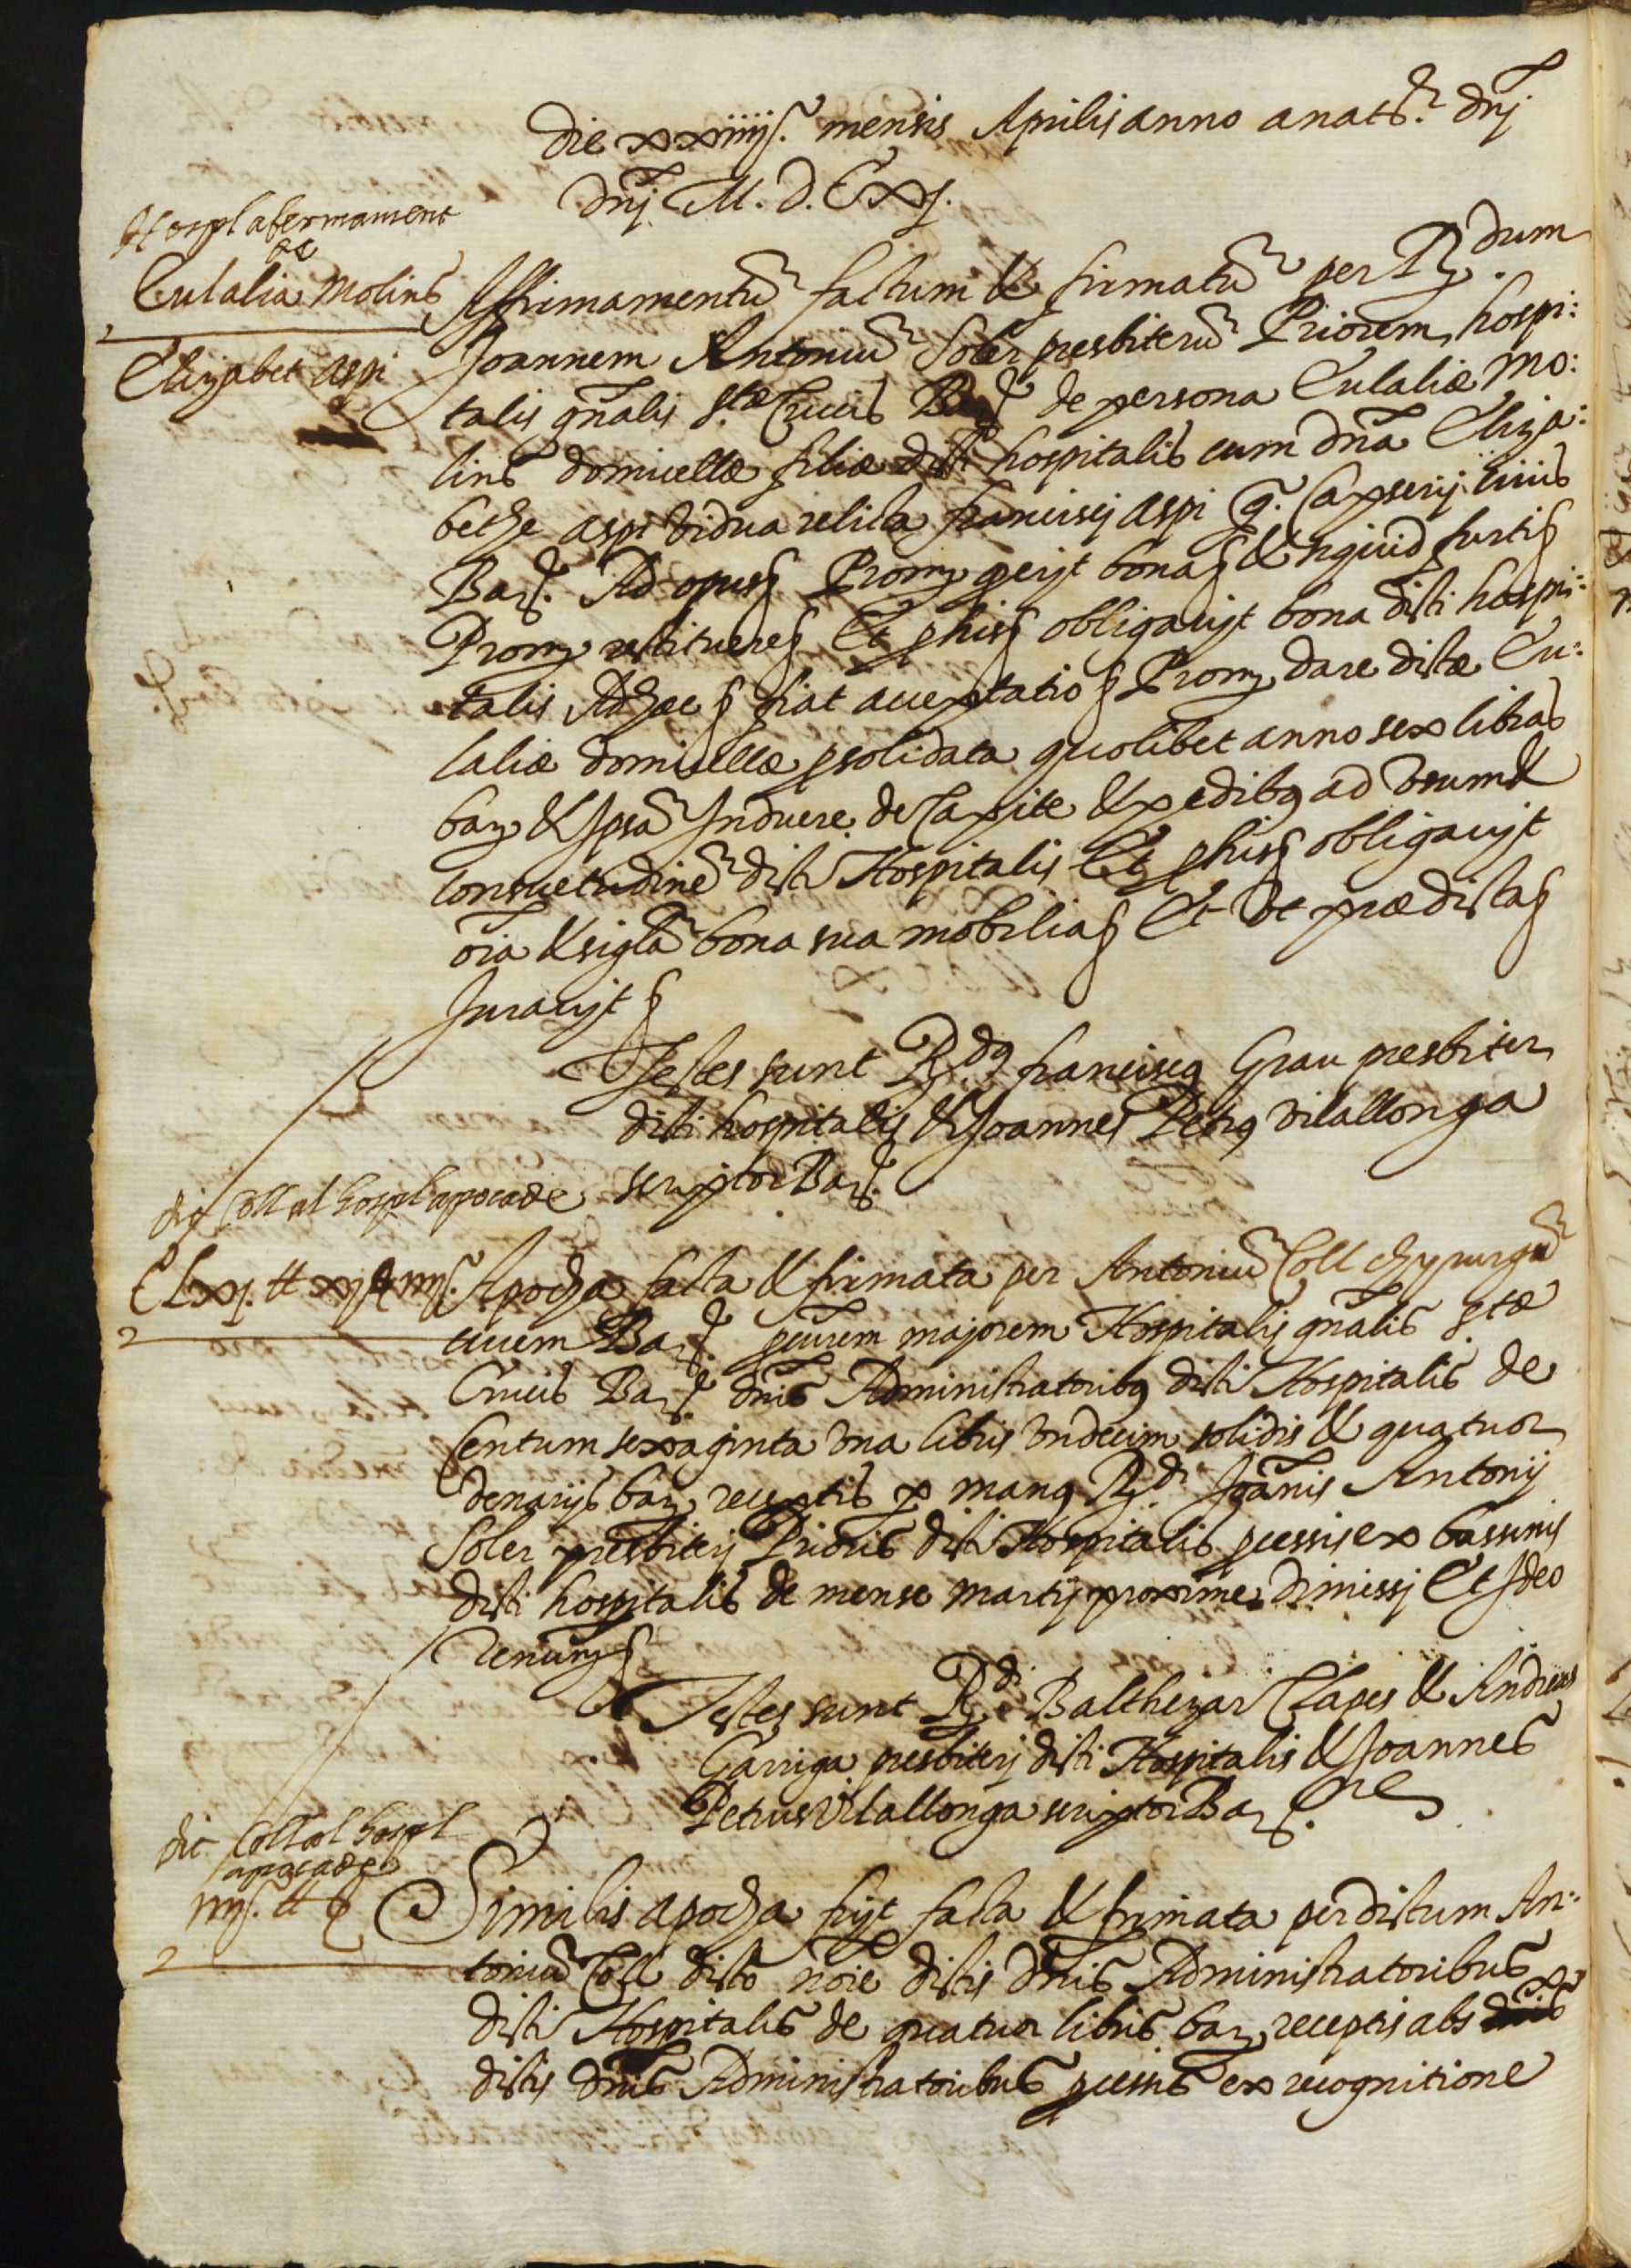 Die xxiiij. mensis Aprilis anno a nat.e dnj
dnj M. D. Cxj.
Hospl afermament
de
Eulalia Molins
Elizabet aspi
Affirmamentũ factum & firmatũ per R.dum
Joannem Antoniũ Soler presbiterũ Priorem hospi:
talis gñalis s.tæ Crucis Barñ de persona Eulaliæ Mo:
lins domicellæ filiæ dicti hospitalis cum dña Eliza:
bethe aspi vidua relicta francisci aspi q.º Capserij civis
Barñ. Ad opus§ Promֵ gerijt bona§ & si quid furti§
Prom restituere§ Et p his§ obligavijt bona dicti hospi:
talis Ad hæc§ fiat acceptatio§ Prom dare dictæ Eu:
laliæ domicellæ p solidata quolibet anno sex libras
bar & Ipsã Induere de Capite & pedibꝰ ad Vsum &
consuetudinẽ dicti Hospitalis Et p his§ obligavijt
oĩa & sigla bona sua mobilia§ Et Vt prædicta§
Juravijt§
Testes sunt R.dꝰ franciscꝰ Grau presbiter
dicti hospitalis & Joannes Petrꝰ vilallonga
scriptor Barñ.
dit Coll al hospl apoca de
CLxj. ℔ xj s iiij.
Apocha facta & firmata per Antoniũ Coll chyrurgũ
civem Barñ. pcũrem majorem Hospitalis gñalis s.tæ
Crucis Barñ dñis Administratoribꝰ dicti Hospitalis de
Centum sexaginta vna libris vndecim solidis & quatuor
denarijs bar receptis p manꝰ R.di Joãnis Antonij
Soler presbiterj Prioris dicti Hospitalis pcessis ex bassinis
dicti hospitalis de mense Martij proxime dimissj Et Ideo
Renun§
Testes sunt R.di Balthezar Clapes & Andreas
Garriga presbiterj dicti Hospitalis & Joannes
Petrus Vilallonga scriptor Barñ.
dit Coll al hospl
apoca de
iiij. ℔
Similis apocha fijt facta & firmata per dictum An:
toniũ Coll dicto noĩe dictis dñis Administratoribus
dicti Hospitalis de quatuor libris bar receptis abs
dictis dñis Administratoribus pcessis ex recognitione